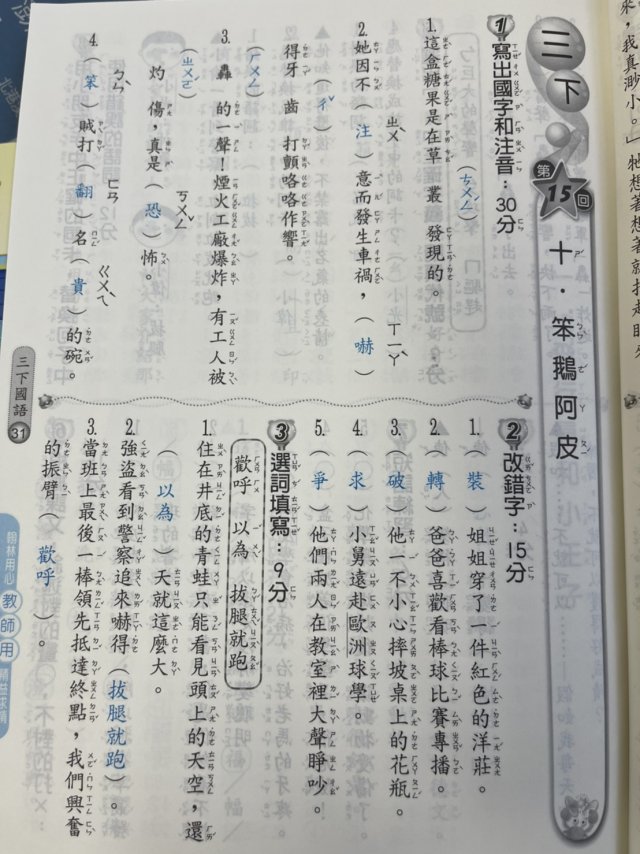 三下
第15回
十．笨鵝阿皮
1 寫出國字和注音：30分
1. 這盒糖果是在草叢（ㄘㄨㄥˊ）發現的。
2. 她因不ㄓㄨˋ（注）意而發生車禍，ㄒㄧㄚˋ（嚇）
得牙齒（ㄔˇ）打顫咯咯作響。
3. 轟（ㄏㄨㄥ）的一聲！煙火工廠爆炸，有工人被
灼（ㄓㄨㄛˊ）傷，真是ㄎㄨㄥˇ（恐）怖。
4. ㄅㄣˋ（笨）賊打ㄈㄢ（翻）名ㄍㄨㄟˋ（貴）的碗。
2 改錯字：15分
1.（裝）姐姐穿了一件紅色的洋莊。
2.（轉）爸爸喜歡看棒球比賽專播。
3.（破）他一不小心摔坡桌上的花瓶。
4.（求）小舅遠赴歐洲球學。
5.（爭）他們兩人在教室裡大聲睜吵。
3 選詞填寫：9分
歡呼 以為 拔腿就跑
1. 住在井底的青蛙只能看見頭上的天空，還
（以為）天就這麼大。
2. 強盜看到警察追來嚇得（拔腿就跑）。
3. 當班上最後一棒領先抵達終點，我們興奮
的振臂（歡呼）。
三下國語 31
翰林用心
教師用
來，我真渺小。」牠想著想著就